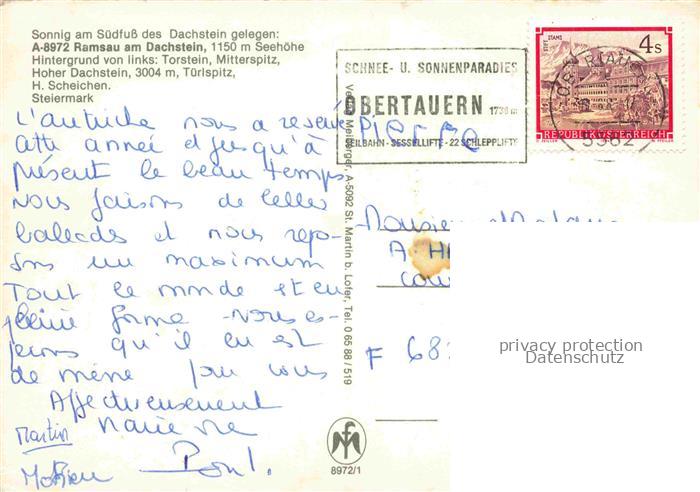 Sonnig am Südfuß des Dachstein gelegen:
A-8972 Ramsau am Dachstein, 1150 m Seehöhe
Hintergrund von links: Torstein, Mitterspitz,
Hoher Dachstein, 3004 m, Türlspitz,
H. Scheichen.
Steiermark
L'autriche nous a reservé
cette année et jusqu'à
présent le beau temps
Nous faisons de belles
ballades et nous repo-
sons un maximum
Tout le monde est en
pleine forme - Nous es-
perons qu'il en est
de même pour vous
Affectueusement
Marie
Martin
Mathieu
Pierre
SCHNEE- U. SONNENPARADIES
OBERTAUERN 1738 m
SEILBAHN - SESSELLIFTE - 22 SCHLEPPLIFTE
STIFT STAMS
4 S
REPUBLIK ÖSTERREICH
5562
Monsieur et Madame
F 68
A-5092 St. Martin b. Lofer, Tel. 0 65 88 / 519
8972/1
privacy protection
Datenschutz